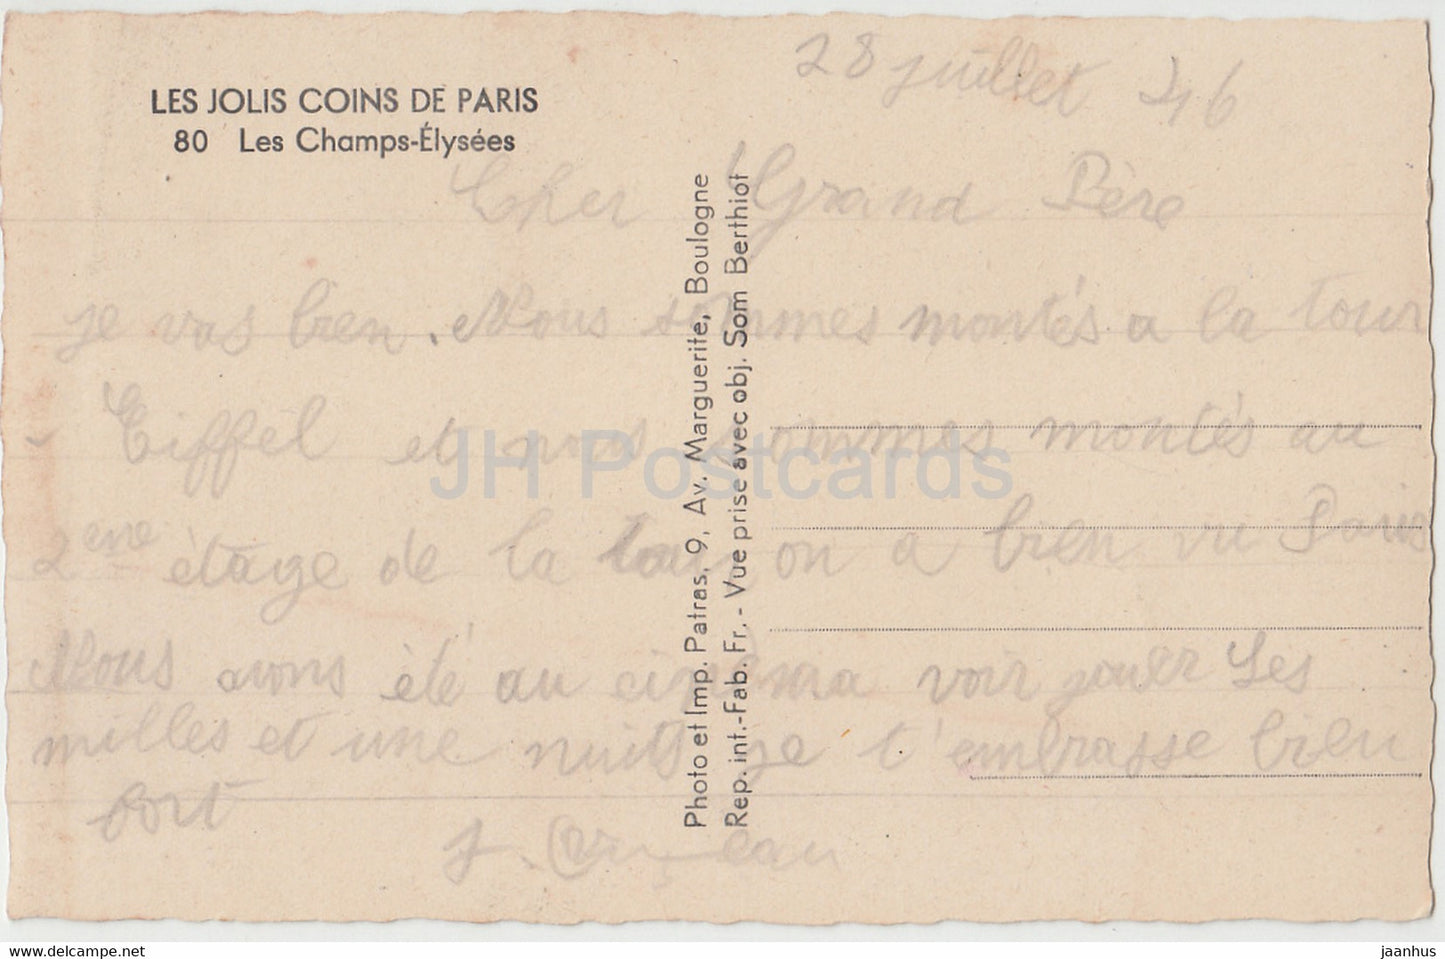 LES JOLIS COINS DE PARIS
80 Les Champs-Élysées
28 juillet 46
Cher Grand Père
je vas bien. Nous sommes montés a la tour
Eiffel et nous sommes montés au
2eme étage de la tour on a bien vu Paris
Nous avons été au cinéma voir jouer Les
milles et une nuits je t'embrasse bien
fort
J.
Photo et Imp. Patras, 9, Av. Marguerite, Boulogne
Rep. int.-Fab. Fr. - Vue prise avec obj. Som Berthiot
JH Postcards
www.jhpostcards.com
jaanhus